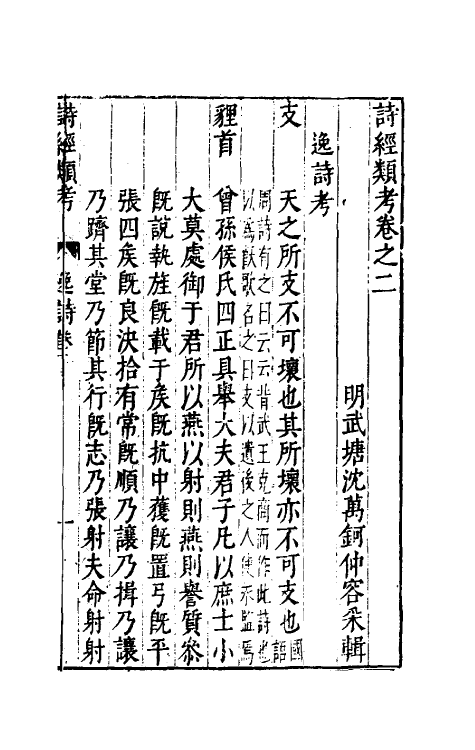 詩經類考卷之二
明武塘沈萬鈳仲容采輯
逸詩考
支
天之所支不可壞也其所壞亦不可支也國語
周詩有之曰云云昔武王克商而作此詩也
以為飫歌名之曰支以遺後之人使永監焉
貍首
曾孫侯氏四正具舉大夫君子凡以庶士小
大莫處御于君所以燕以射則燕則譽質參
既說執旌既載于矦既抗中獲既置弓既平
張四矦既良決拾有常既順乃讓乃揖乃讓
乃躋其堂乃節其行既志乃張射夫命射射
詩經類考
逸詩卷
一